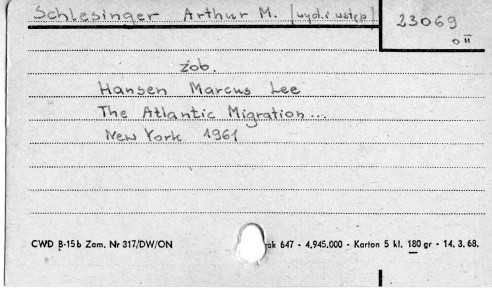 Schlesinger Arthur M. [wyd. i wstęp]
23069
o II
zob.
Hansen Marcus Lee
The Atlantic Migration...
New York 1961
CWD B-15b Zam. Nr 317/DW/ON
ak 647 - 4,945.000 - Karton 5 kl. 180 gr - 14. 3. 68.